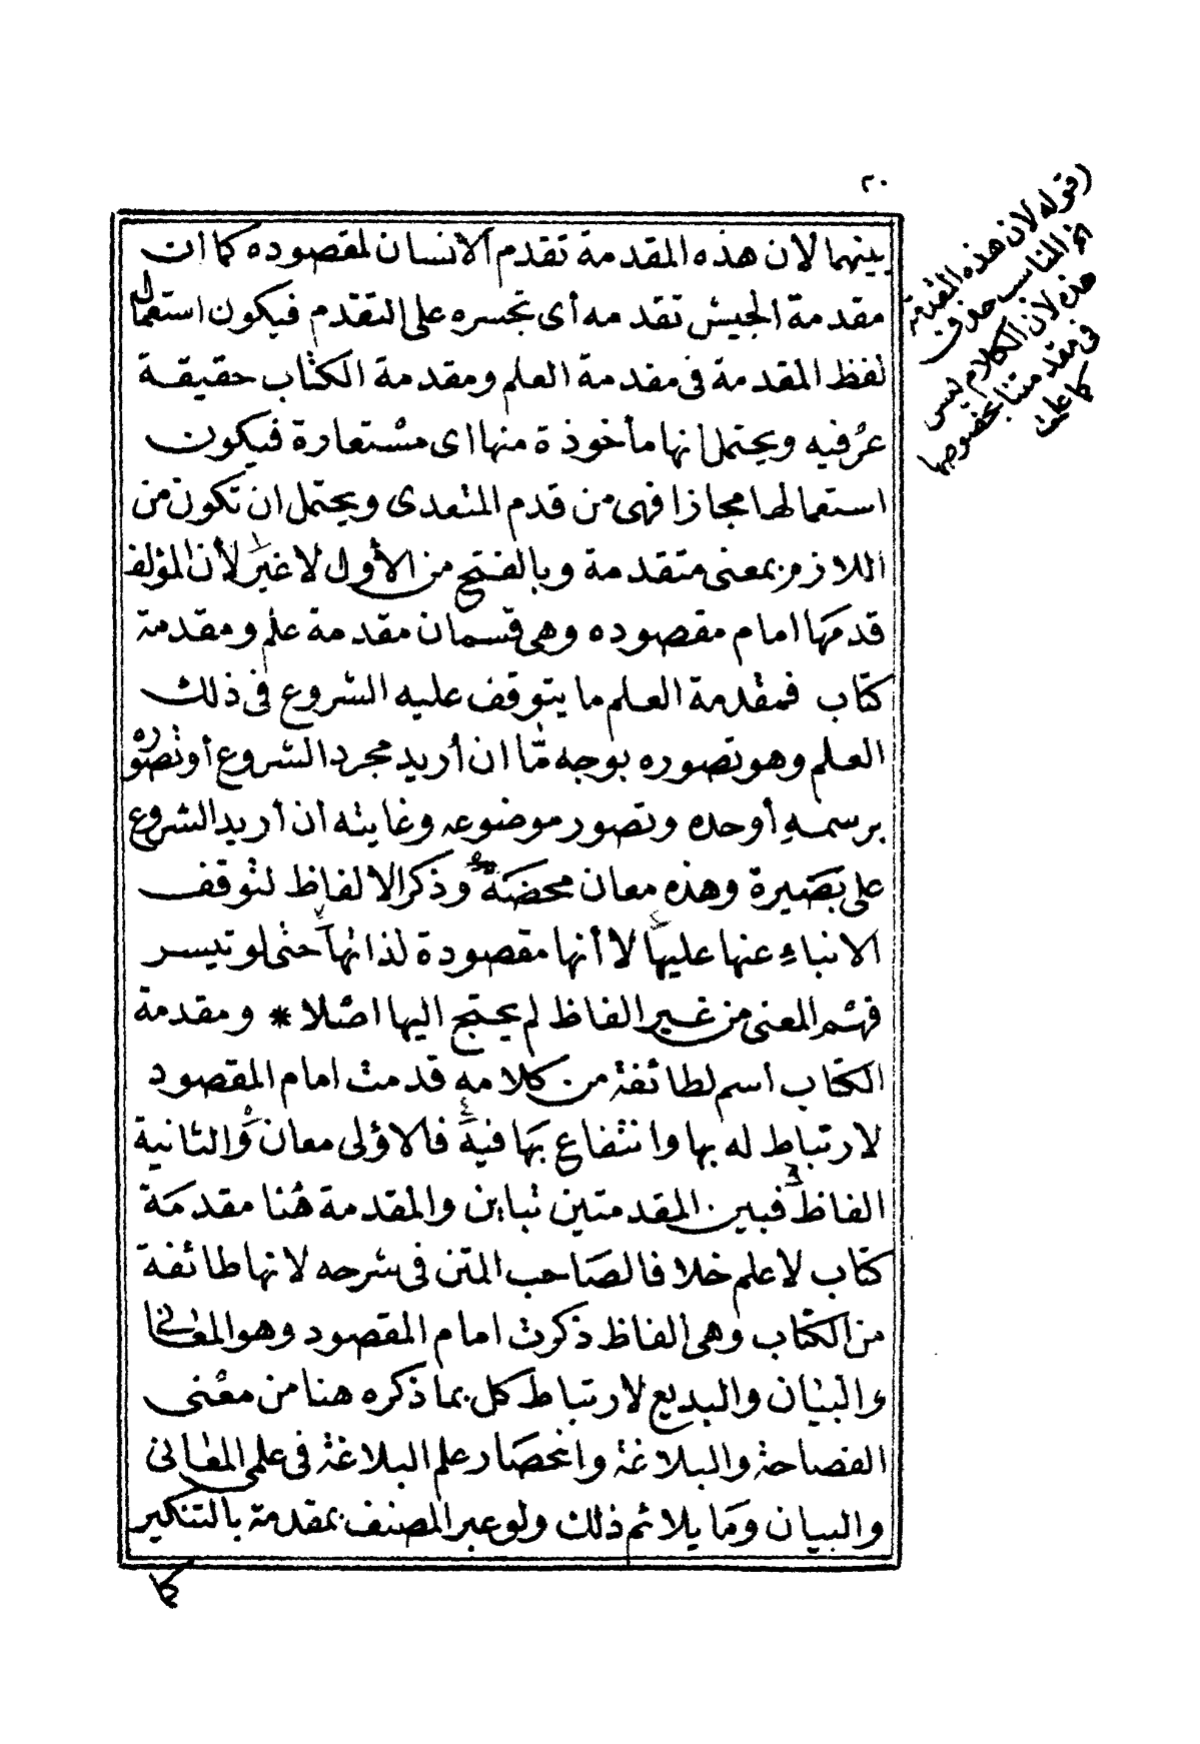 ٢٠
بينهما لان هذه المقدمة تقدم الانسان لمقصوده كما ان
مقدمة الجيش تقدمه أى تجسره على التقدم فيكون استعمال
لفظ المقدمة فى مقدمة العلم ومقدمة الكتاب حقيقة
عرفيه ويحتمل انها مأخوذة منها اى مستعارة فيكون
استعمالها مجازا فهى من قدم المتعدى ويحتمل ان تكون من
اللازم بمعنى متقدمة وبالفتح من الأول لا غير لأن المؤلف
قدمها امام مقصوده وهى قسمان مقدمة علم ومقدمة
كتاب فمقدمة العلم ما يتوقف عليه الشروع فى ذلك
العلم وهو تصوره بوجه مّا ان أريد مجرد الشروع أو تصوره
برسمه أو حده وتصور موضوعه وغايته ان أريد الشروع
على بصيرة وهذه معان محضة وذكر الالفاظ لتوقف
الانباء عنها عليها لا أنها مقصودة لذاتها حتى لو تيسر
فهم المعنى من غير الفاظ لم يحتج اليها اصلا * ومقدمة
الكتاب اسم لطائفة من كلامه قدمت امام المقصود
لارتباط له بها وانتفاع بها فيه فالاولى معان والثانية
الفاظ فبين المقدمتين تباين والمقدمة هنا مقدمة
كتاب لا علم خلافا لصاحب المتن فى شرحه لانها طائفة
من الكتاب وهى الفاظ ذكرت امام المقصود وهو المعانى
والبيان والبديع لارتباط كل بما ذكره هنا من معنى
الفصاحة والبلاغة وانحصار علم البلاغة فى علمى المعانى
والبيان وما يلائم ذلك ولو عبر المصنف بمقدمة بالتنكير
كما
(قوله لان هذه المقدمة
الخ المناسب حذف
هذه لأن الكلام ليس
فى مقدمتنا بخصوصها
كما علمت